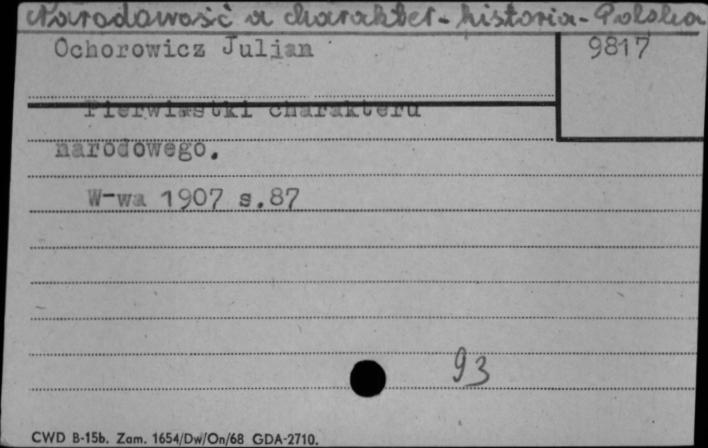 Narodowość a charakter - historia - Polska
Ochorowicz Julian
9817
Pierwiastki charakteru
narodowego.
W-wa 1907 s.87
93
CWD B-15b. Zam. 1654/Dw/On/68 GDA-2710.